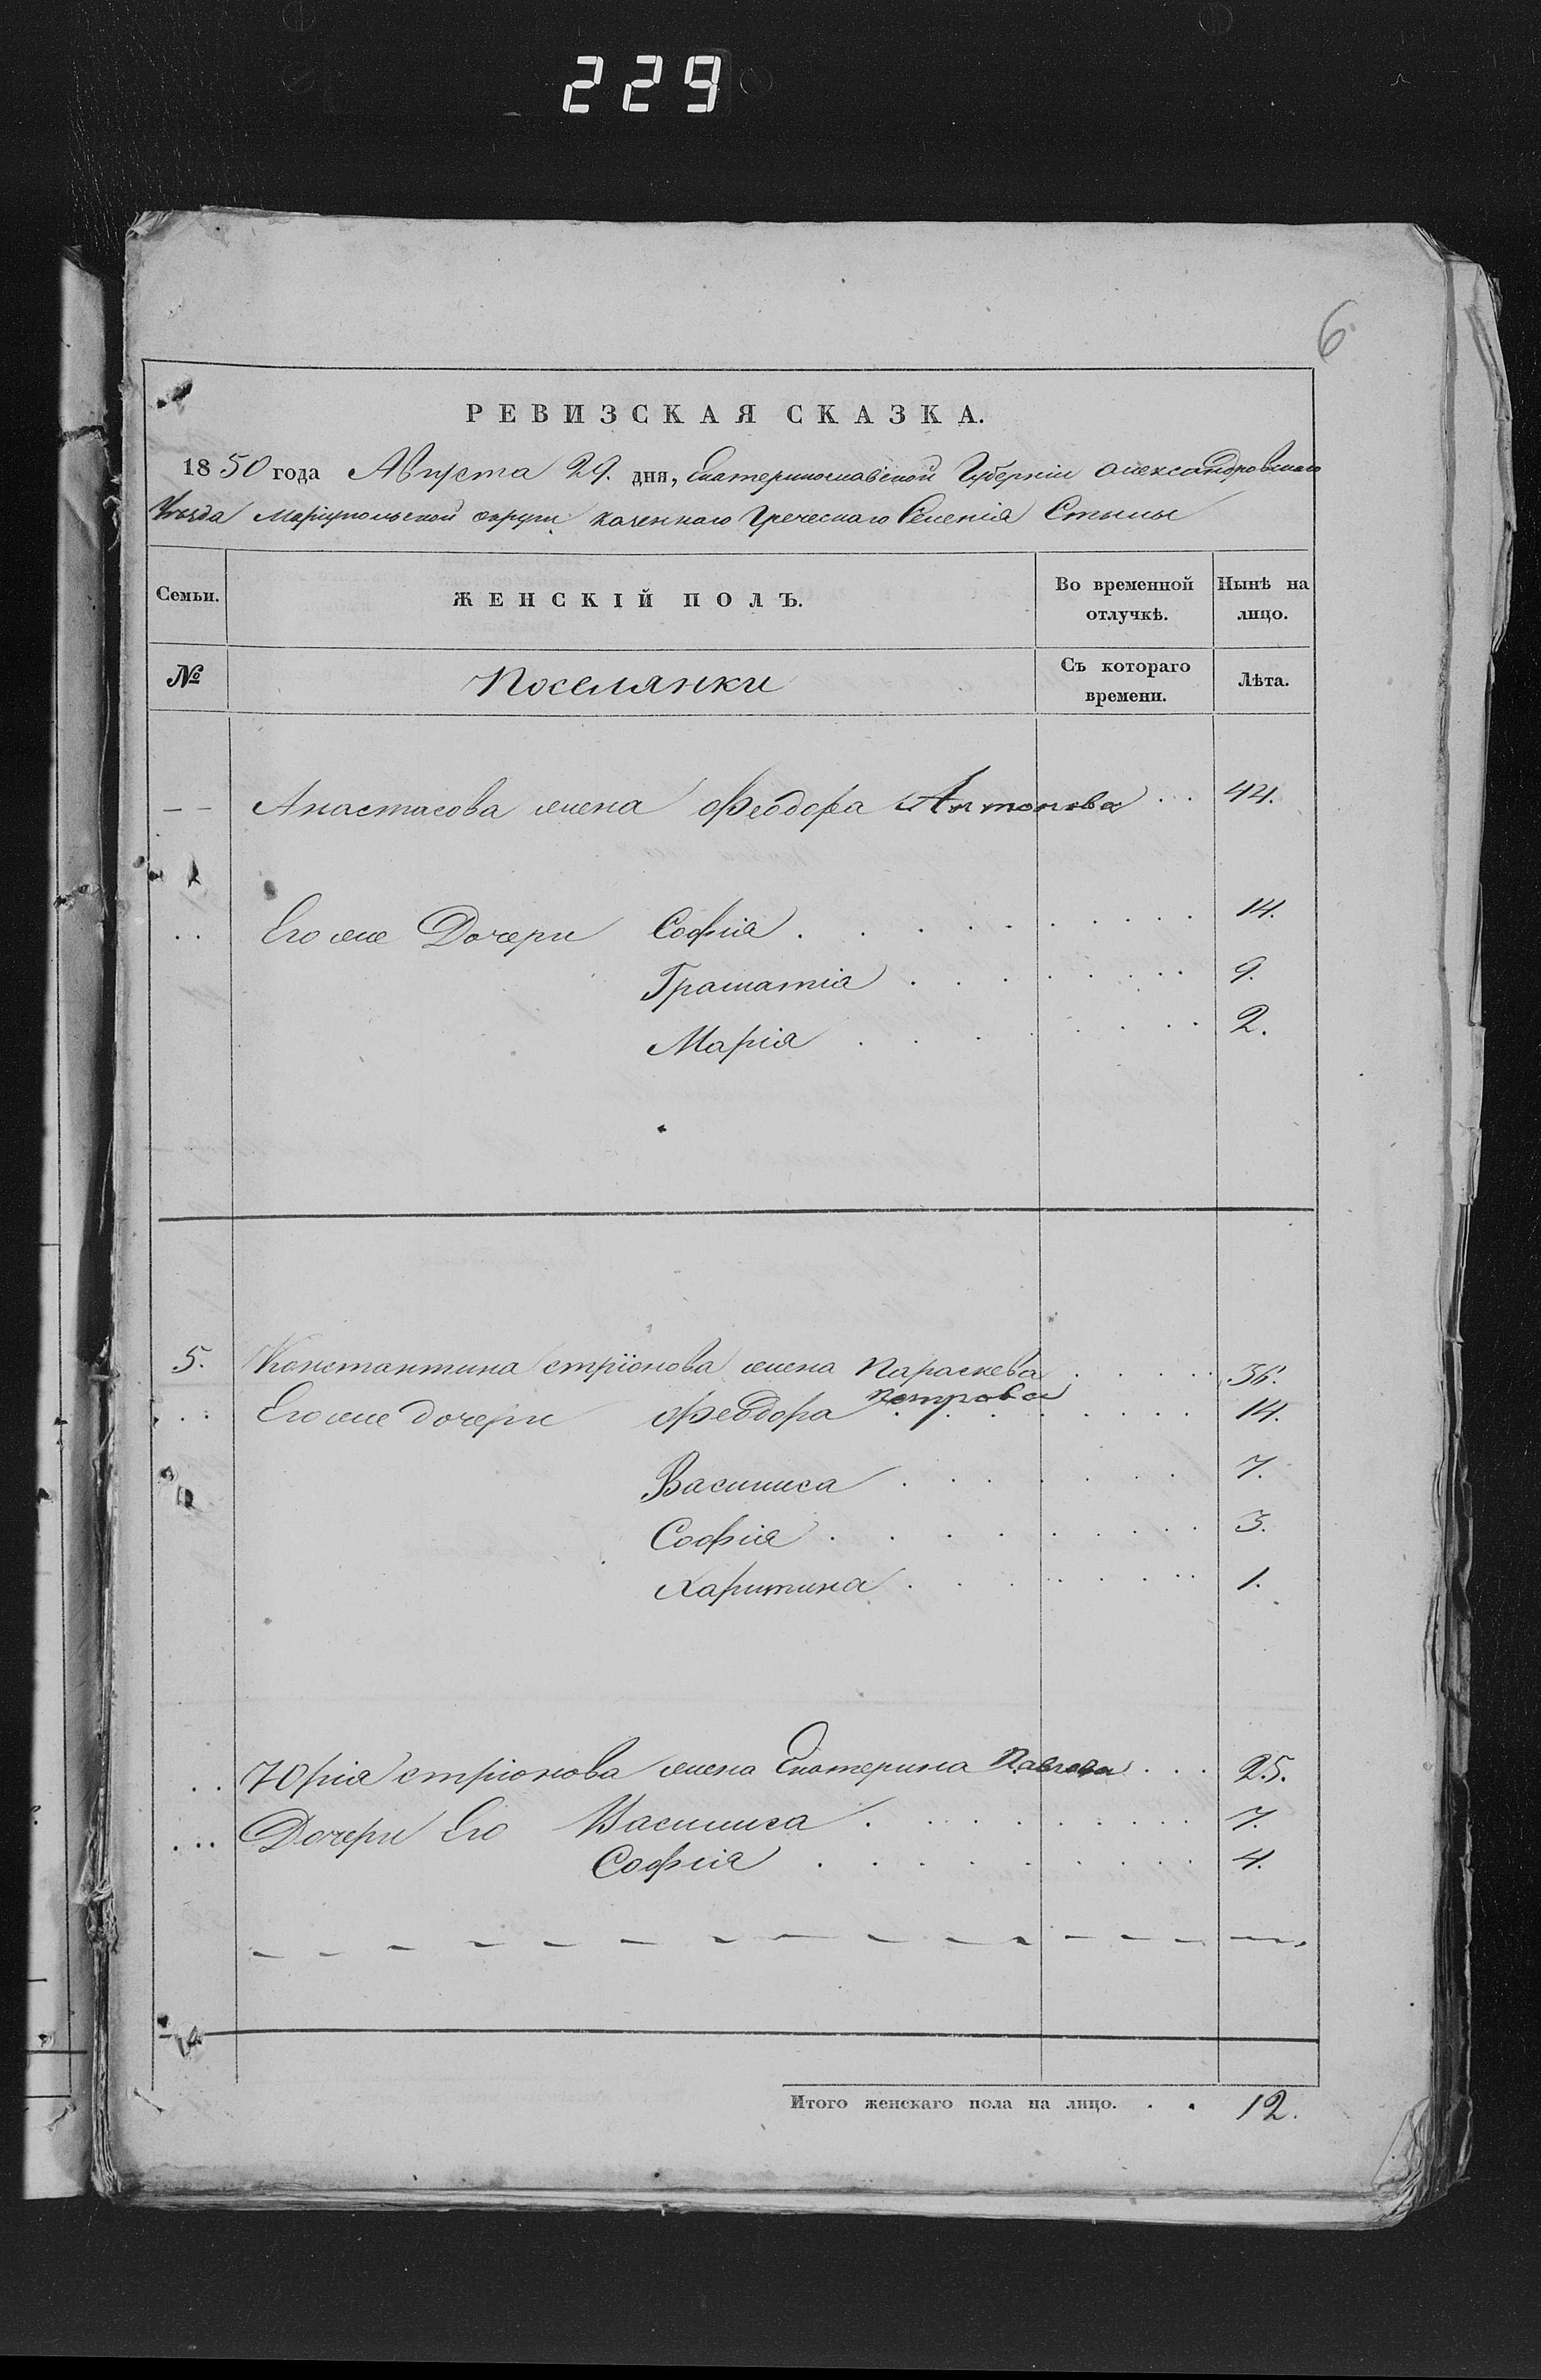 229
6
РЕВИЗСКАЯ СКАЗКА.
1850 года Августа 29. дня, Екатеринославской Губерніи Александровскаго
Уезда Маріупольской округи казеннаго Греческаго Селенія Стылы
Семьи. ЖЕНСКІЙ ПОЛЪ. Во временной отлучкѣ. Нынѣ на лицо.
№ Поселянки Съ котораго времени. Лѣта.
Анастасова жена Феодора Антонова 44.
Его же Дочери Софія 14.
Граматія 9.
Марія 2.
5. Константина стріонова жена Параскева 36.
Петрова
Его же дочери Феодора 14.
Василиса 7.
Софія 3.
Харитина 1.
Юрія стріонова жена Екатерина Павлова 25.
Дочери Его Василиса 7.
Софія 4.
Итого женскаго пола на лицо. 12.